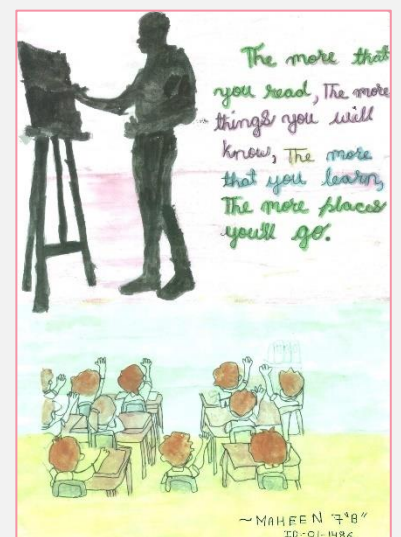 The more that
you read, The more
things you will
know, The more
that you learn,
The more places
you'll go.
~ MAHEEN 7"B"
ID-01-1486